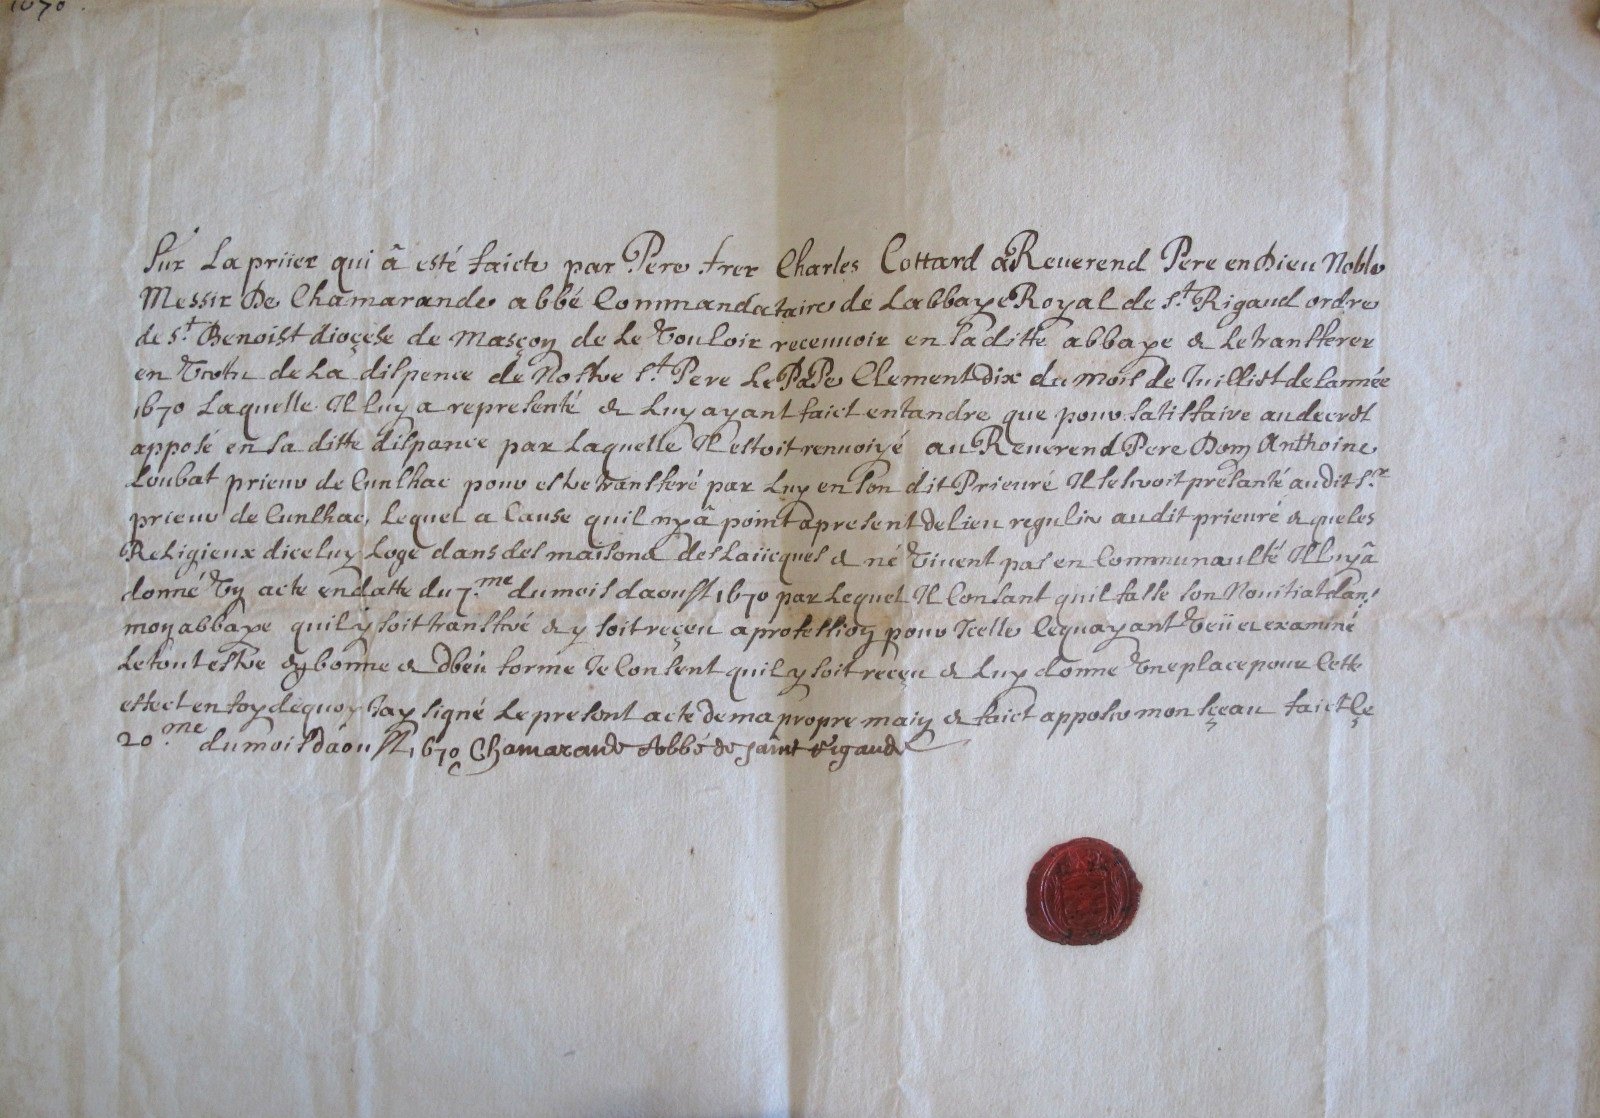 1670.
Sur La priier qui â esté faicte par Pere frer Charles Cottard a Reuerend Pere en Dieu Noble
Messir De Chamarande abbé Commandataire de Labbaye Royal de S.t Rigaud ordre
de S.t Benoist dioçese de Masçon de Le Vouloir receuuoir en sa ditte abbaye & Le transferer
en Vertu de La dispence de Nostre S.t Pere Le PaPe Clement Dix du mois de Juilliet de Lannée
1670 Laquelle Il luy a representé & Luy ayant faict entandre que pour satisfaire au decret
apposé en sa ditte dispance par Laquelle Il estoit renuoiyé au Reuerend Pere Dom Anthoine
Loubat prieur de Cunlhac pour estre transferé par Luy en son dit Prieuré Il se seroit presanté audit S.r
prieur de Cunlhac, Lequel a Cause quil ny â point apresent de lieu regulier au dit prieuré & que les
Religieux diceluy Loge dans des maisons des Laiicques & né Viuent pas en Communaulté Il luy â
donné Vn acte en datte du 7.me du mois daoust 1670 par Lequel Il Consant quil fasse son Nouitiat dans
mon abbaye quil y soit transferé & y soit reçeu a profession pour Icelle Cequayant Veü et examiné
Le tout estre en bonne & deüe forme Je Consent quil y soit reçeu & Luy donne Vne place pour Cette
effect en foy dequoy Jay signé Le present acte de ma propre main & faict apposer mon sçeau faict Le
20.me du mois dáoust 1670 Chamarande Abbé de saint Rigaud